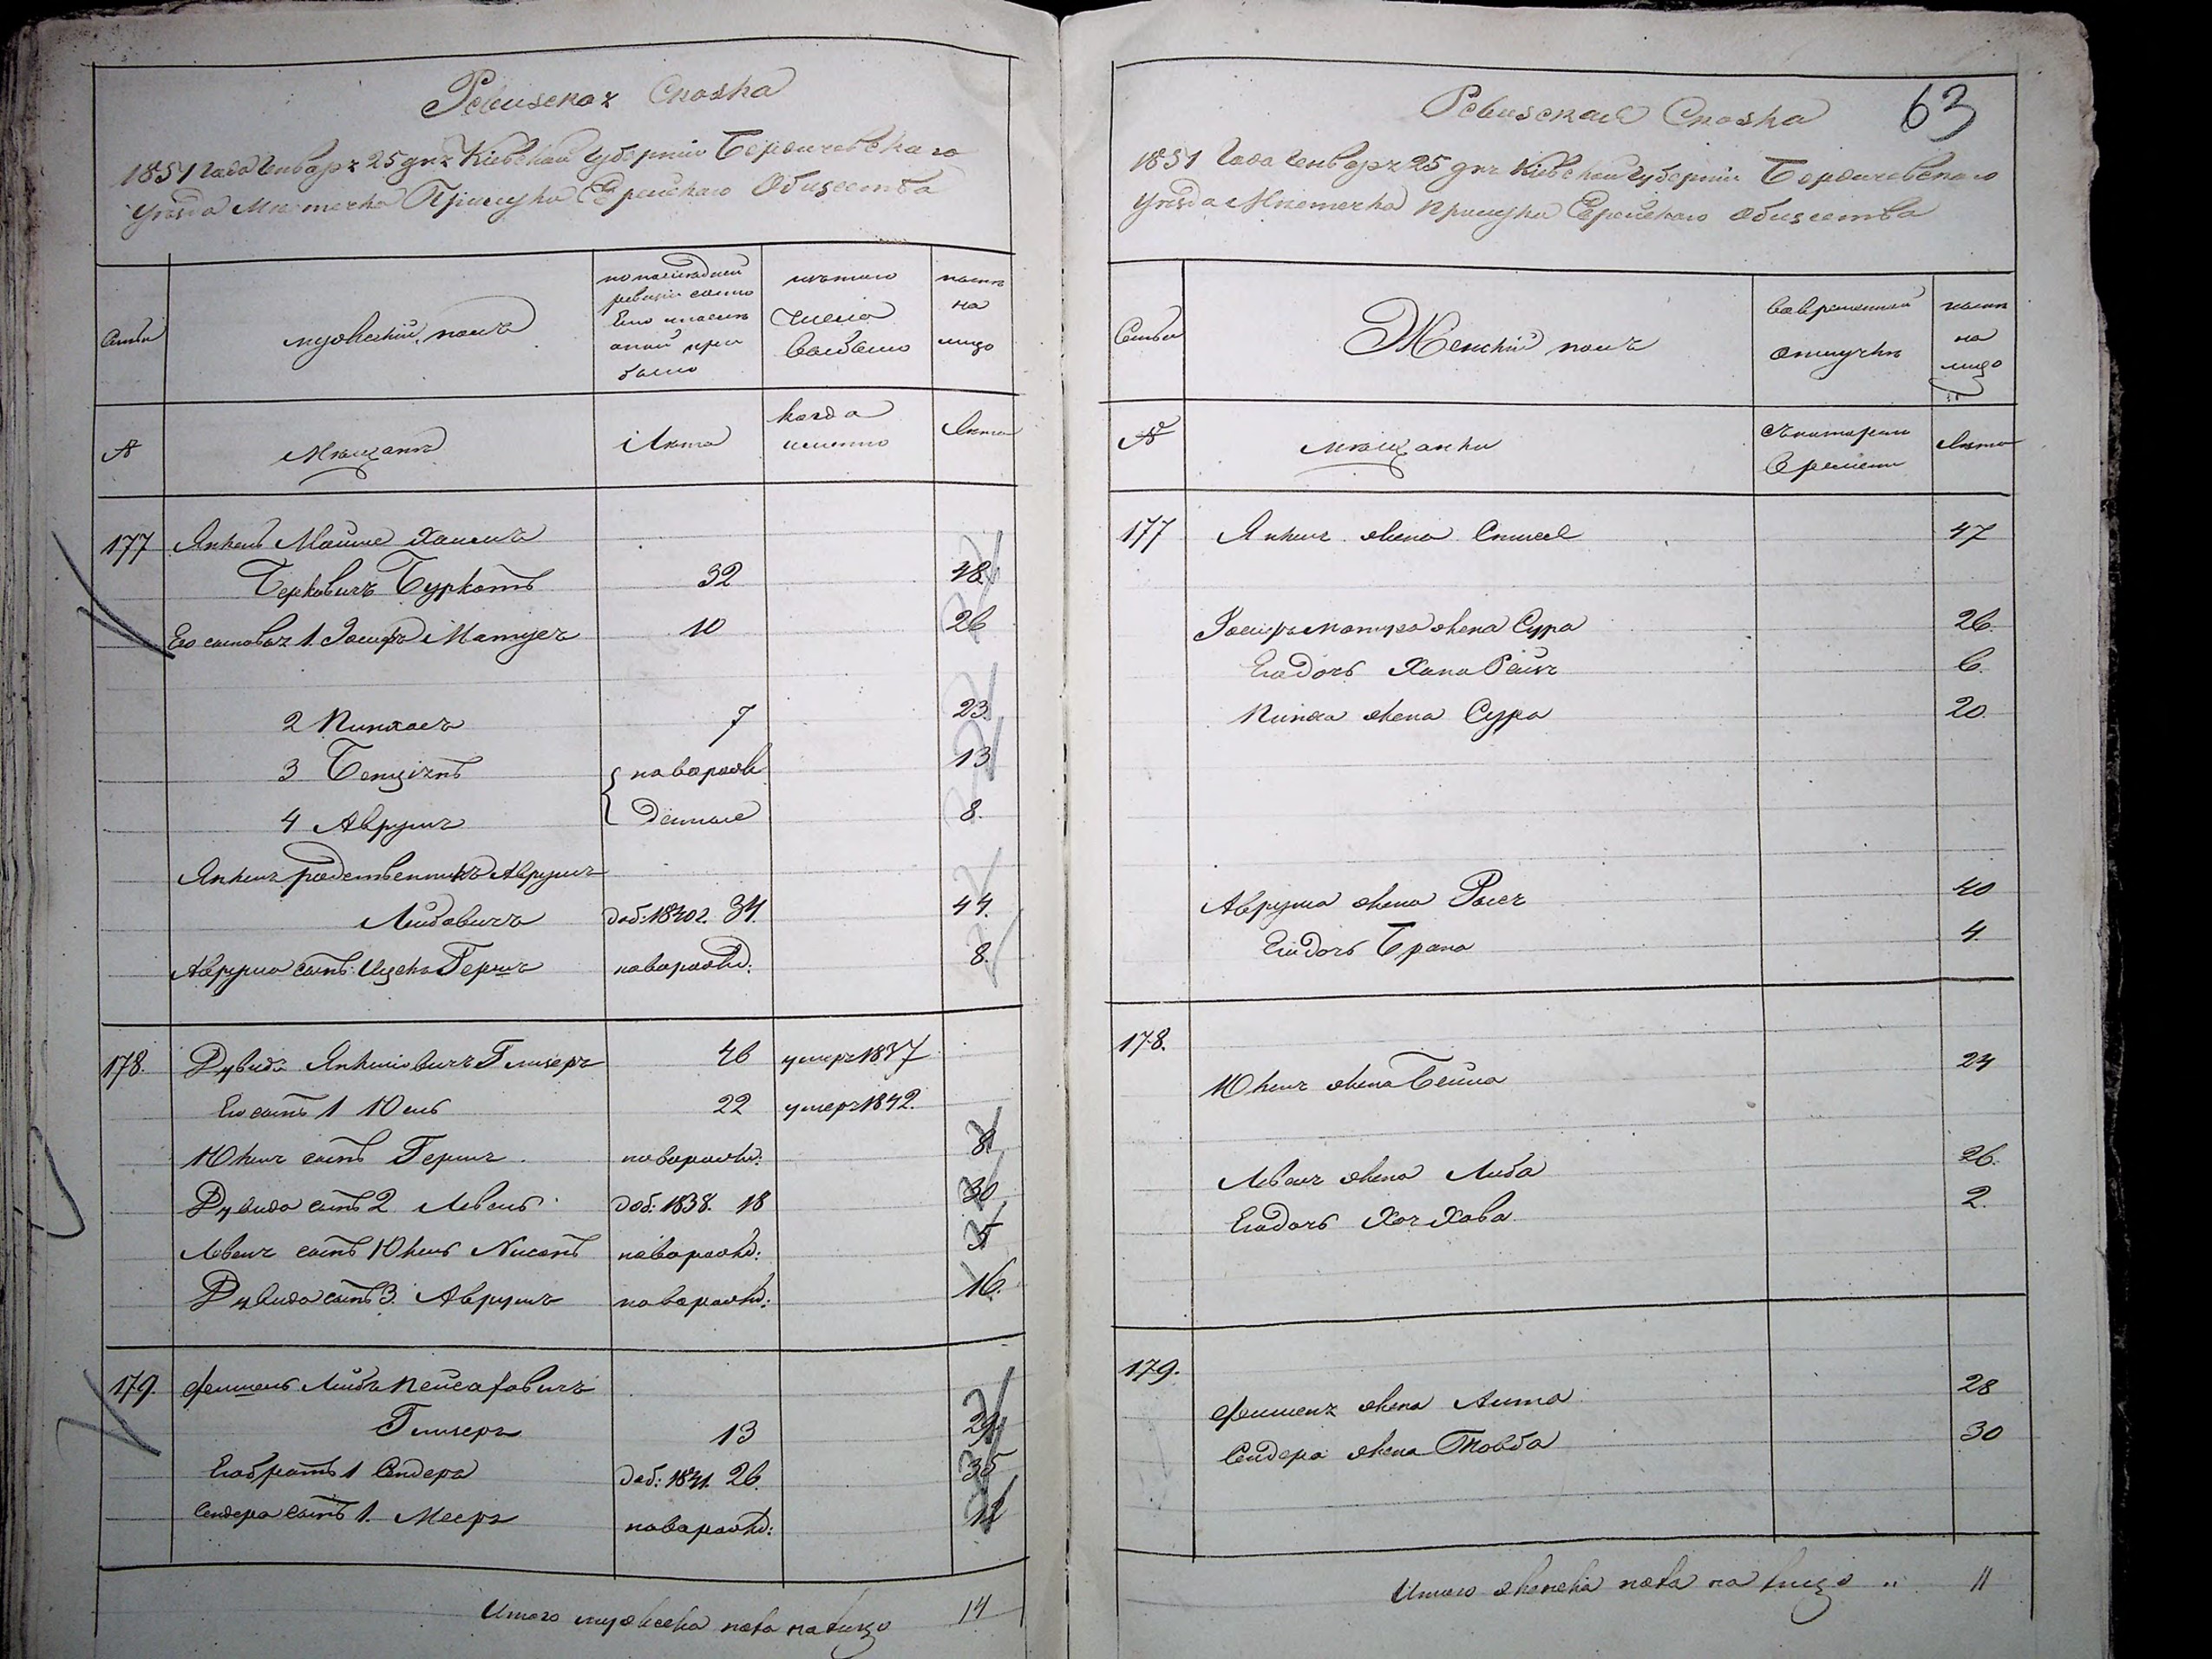 Ревизская Сказка
1851 Года Генваря 25 дня Кіевской Губерніи Бердичевскаго
уѣзда Мѣстечка Прилуки Еврейскаго Общества
Семьи
мужескій полъ
по последней
ревизіи состо
яло или после
оной при
было
изъ того
числа
выбыло
нынѣ
на
лицо
№
Мѣщанъ
Лѣта
когда
именно
Лѣта
177 Янкель Мойше Хаимъ
Берковичъ Буркатъ 32 48
Его сыновья 1. Іосифъ Матусъ 10 26
2 Пинхасъ 7 23
3 Бенціянъ новорож 13
4 Аврумъ денные 8.
Янкеля родственникъ Аврумъ
Лейбовичъ доб: 1840 г. 34. 44.
Аврума сынъ Ицско Гершъ новорожд: 8.
178. Дувидъ Янкеліовичъ Глизеръ 46 умеръ 1847
Его сынъ 1 Юкель 22 умеръ 1842.
Юкеля сынъ Гершъ новорожд: 8
Дувида сынъ 2 Левель доб: 1838. 18 30
Левеля сынъ Юкель Нисонъ новорожд: 5
Дувида сынъ 3. Аврумъ новорожд: 16.
179. Фишель Лейбъ Пейсаховичъ
Глизеръ 13 29
Его братъ 1 Сендеръ доб: 1841. 26. 35
Сендера сынъ 1. Мееръ новорожд: 12
Итого мужеска пола на лицо 14
63
Ревизская Сказка
1851 Года Генваря 25 дня Кіевской Губерніи Бердичевскаго
уѣзда Мѣстечка Прилуки Еврейскаго Общества
Семьи
Женскій полъ
во временной
отлучкѣ
нынѣ
на
лицо
№
мѣщанки
съ котораго
времени
Лѣта
177 Янкеля жена 47
Іосифа Матуса жена Сура 26.
Его дочь Хана Рейзя 6.
Пинхаса жена Сура 20.
Аврума жена Рося 40
Его дочь Брана 4.
178.
Юкеля жена Бейла 24
Левеля жена Либа 26.
Его дочь Хая Хава 2.
179.
Фишеля жена Анна 28
Сендера жена Товба 30
Итого женска пола на лицо " 11